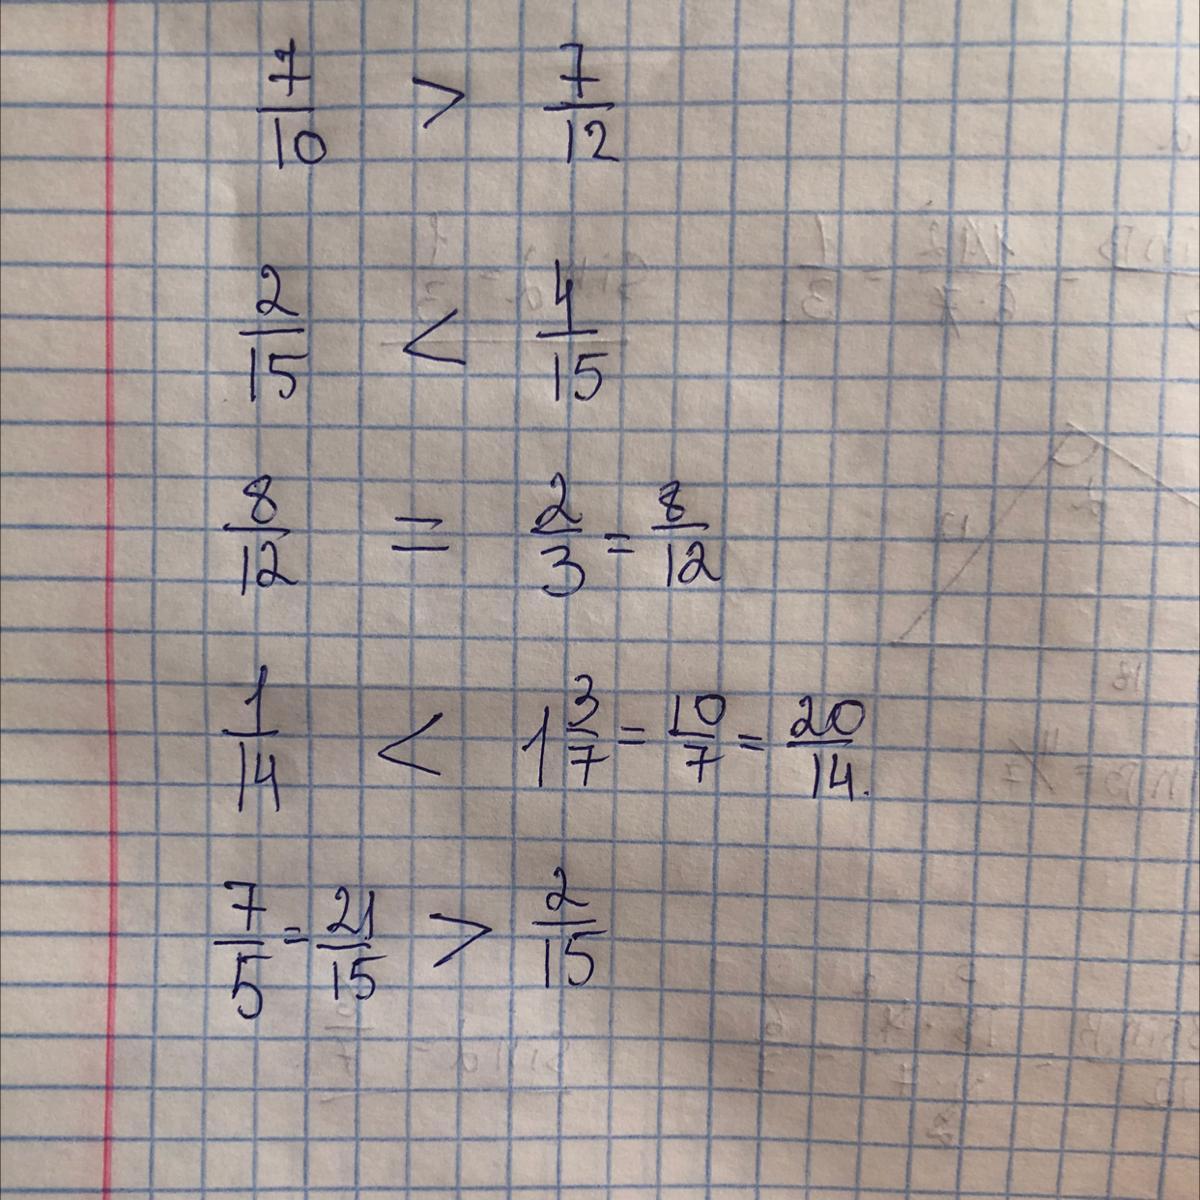 7/10 > 7/12
2/15 < 4/15
8/12 = 2/3 = 8/12
1/14 < 1 3/7 = 10/7 = 20/14.
7/5 = 21/15 > 2/15